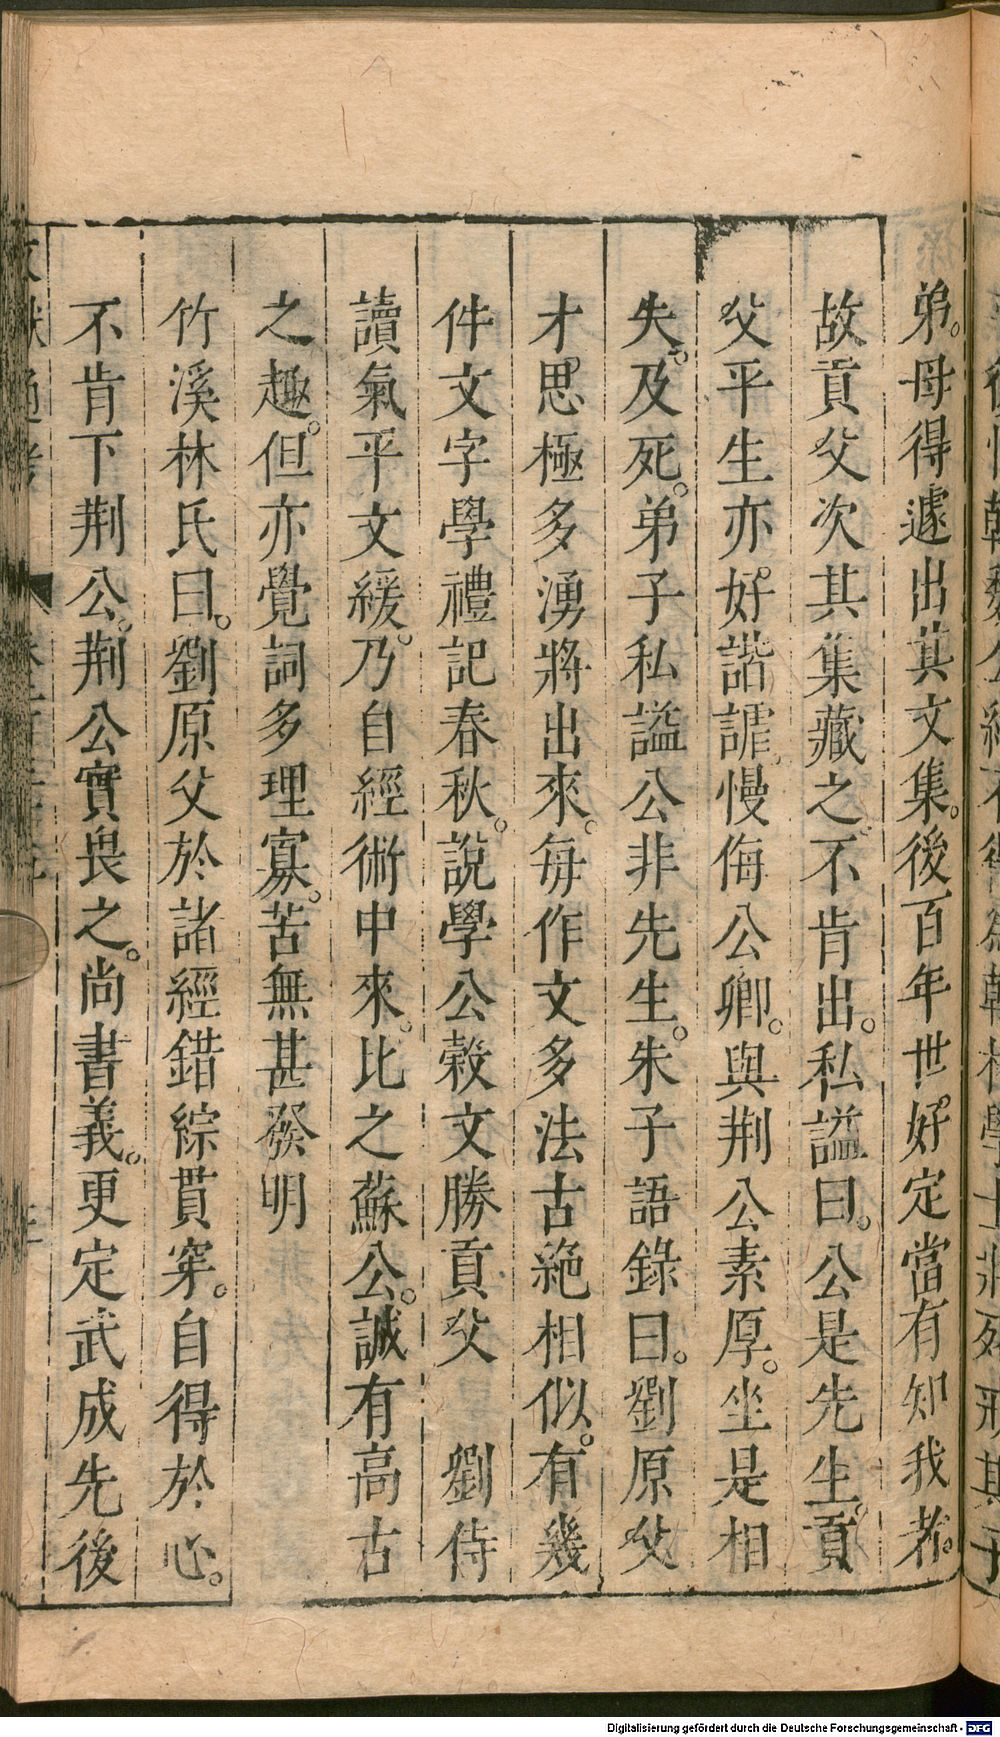 弟。母得遽出其文集。後百年世好定當有知我者。
故貢父次其集藏之不肯出。私謚曰。公是先生。貢
父平生亦好諧謔慢侮公卿。與荆公素厚。坐是相
失。及死。弟子私謚公非先生。朱子語錄曰。劉原父
才思極多湧將出來。每作文多法古絶相似。有幾
件文字學禮記春秋。說學公穀文勝貢父 劉侍
讀氣平文緩。乃自經術中來。比之蘇公。誠有高古
之趣。但亦覺詞多理寡。苦無甚發明
竹溪林氏曰。劉原父於諸經錯綜貫穿。自得於心。
不肯下荆公。荆公實畏之。尚書義。更定武成先後
Digitalisierung gefördert durch die Deutsche Forschungsgemeinschaft - DFG